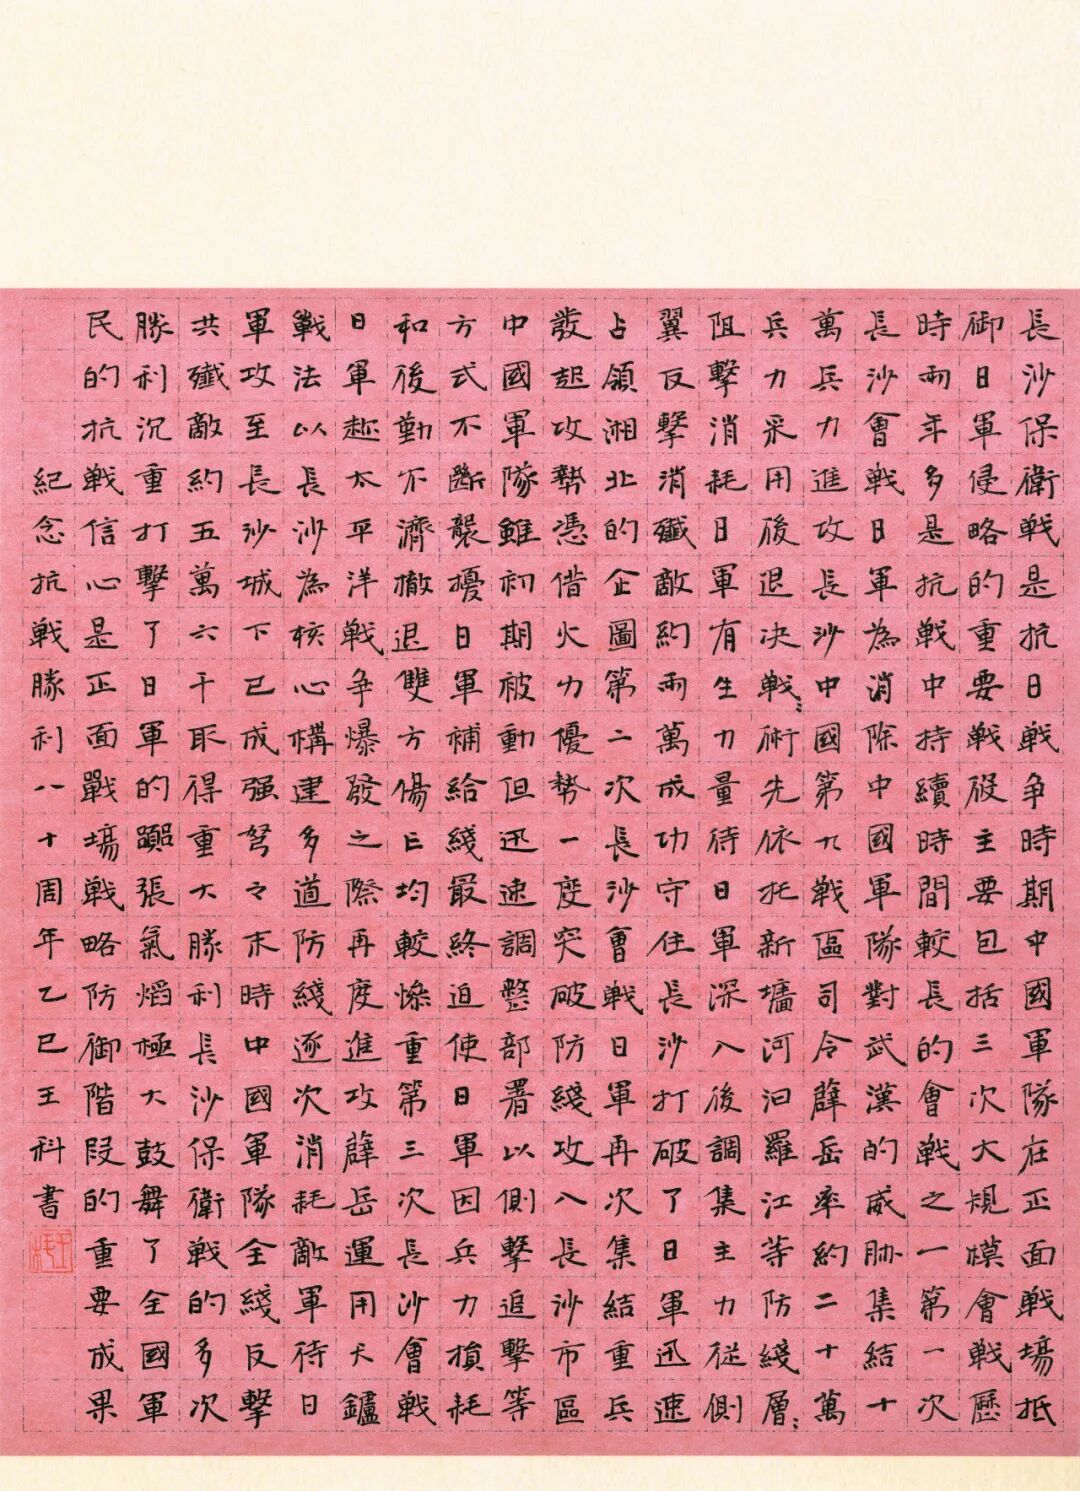 長沙保衛戰是抗日戰争時期中國軍隊在正面戰場抵
御日軍侵略的重要戰役主要包括三次大規模會戰歷
時兩年多是抗戰中持續時間較長的會戰之一第一次
長沙會戰日軍為消除中國軍隊對武漢的威脅集結十
萬兵力進攻長沙中國第九戰區司令薛岳率約二十萬
兵力采用後退決戰〻術先依托新墻河汩羅江等防綫層〻
阻擊消耗日軍有生力量待日軍深入後調集主力從側
翼反擊消殲敵約兩萬成功守住長沙打破了日軍迅速
占領湘北的企圖第二次長沙會戰日軍再次集結重兵
發起攻勢憑借火力優勢一度突破防綫攻入長沙市區
中國軍隊雖初期被動但迅速調整部署以側擊追擊等
方式不斷襲擾日軍補給綫最終迫使日軍因兵力損耗
和後勤不濟撤退雙方傷亡均較慘重第三次長沙會戰
日軍趁太平洋戰争爆發之際再度進攻薛岳運用天鑪
戰法以長沙為核心構建多道防綫逐次消耗敵軍待日
軍攻至長沙城下已成强弩之末時中國軍隊全綫反擊
共殲敵約五萬六千取得重大勝利長沙保衛戰的多次
勝利沉重打擊了日軍的囂張氣焰極大鼓舞了全國軍
民的抗戰信心是正面戰場戰略防御階段的重要成果
紀念抗戰勝利八十周年乙巳王科書